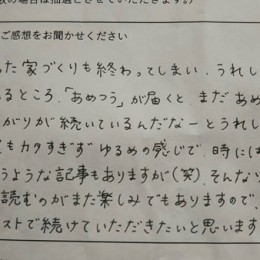 数の場合は抽選とさせていただきます。)
ご感想をお聞かせください
た 家づくりも終わってしまい、うれし
るところ、「あめつう」が届くと、まだあめ
がりが続いているんだなーとうれし
もカタすぎず ゆるめの感じで、時には
うような記事もありますが(笑)、そんな
読むのがまた楽しみでもありますので、
ストで続けていただきたいと思います